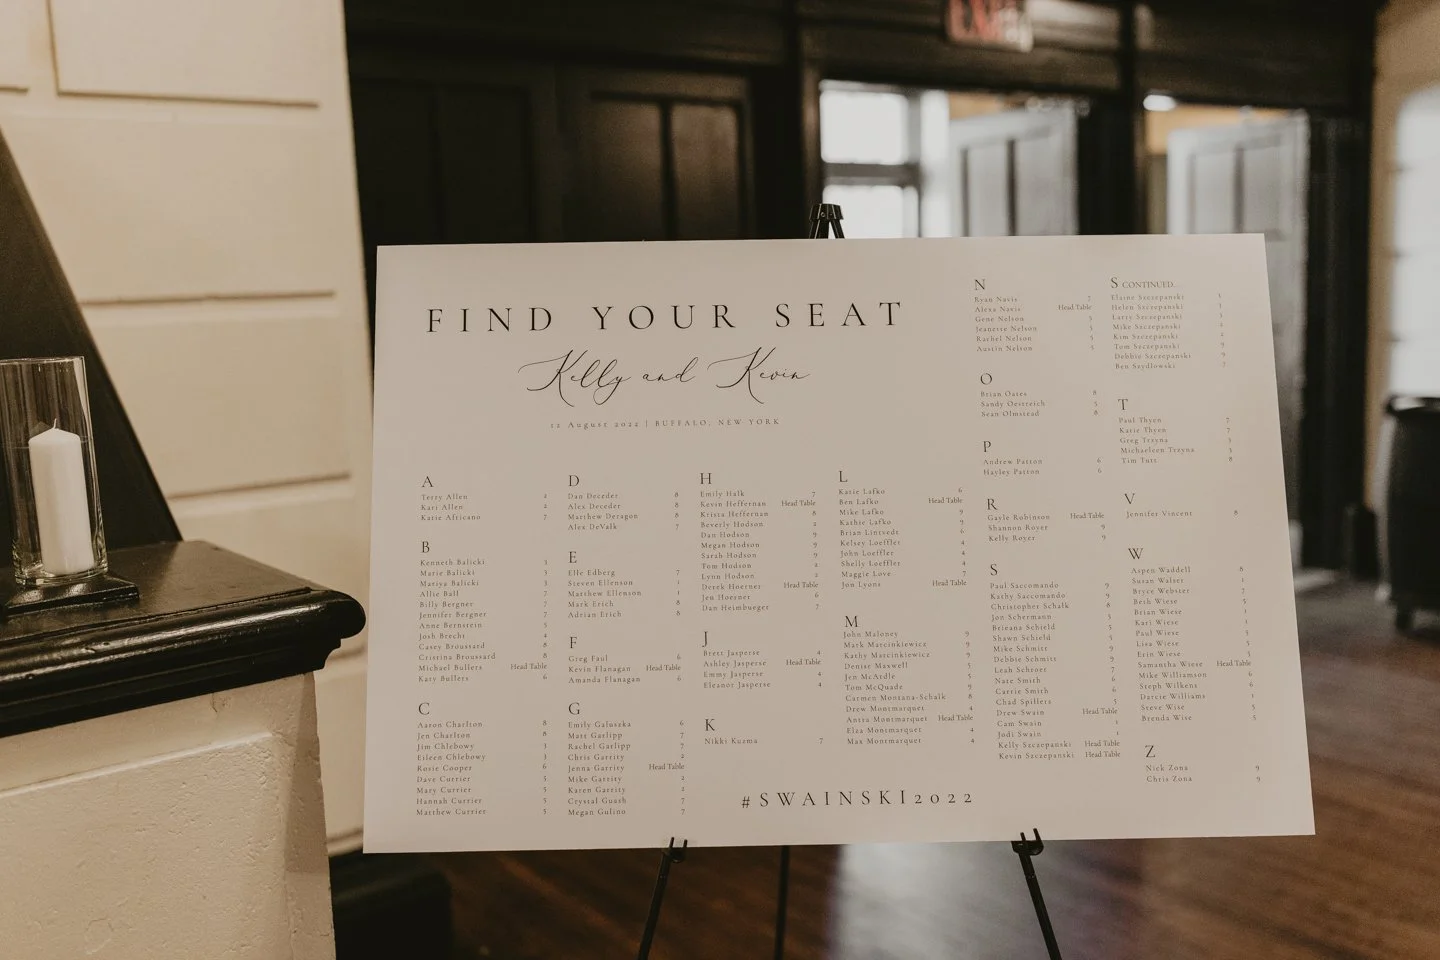 FIND YOUR SEAT
Kelly and Kevin
12 August 2022 | BUFFALO, NEW YORK
A
Terry Allen 2
Kari Allen 2
Katie Africano 7
B
Kenneth Balicki 3
Marie Balicki 3
Mariya Balicki 3
Allie Ball 7
Billy Bergner 7
Jennifer Bergner 7
Anne Bernstein 5
Josh Brecht 4
Casey Broussard 8
Cristina Broussard 8
Michael Bullers Head Table
Katy Bullers 6
C
Aaron Charlton 8
Jen Charlton 8
Jim Chlebowy 3
Eileen Chlebowy 3
Rosie Cooper 6
Dave Currier 5
Mary Currier 5
Hannah Currier 5
Matthew Currier 5
D
Dan Deceder 8
Alex Deceder 8
Matthew Deragon 8
Alex DeValk 7
E
Elle Edberg 7
Steven Ellenson 1
Matthew Ellenson 1
Mark Erich 8
Adrian Erich 8
F
Greg Faul 6
Kevin Flanagan Head Table
Amanda Flanagan 6
G
Emily Galuszka 6
Matt Garlipp 7
Rachel Garlipp 7
Chris Garrity 2
Jenna Garrity Head Table
Mike Garrity 2
Karen Garrity 2
Crystal Guash 7
Megan Gulino 7
H
Emily Halk 7
Kevin Heffernan Head Table
Krista Heffernan 8
Beverly Hodson 2
Dan Hodson 9
Megan Hodson 9
Sarah Hodson 9
Tom Hodson 2
Lynn Hodson 2
Derek Hoerner Head Table
Jen Hoerner 6
Dan Heimbueger 7
J
Brett Jasperse 4
Ashley Jasperse Head Table
Emmy Jasperse 4
Eleanor Jasperse 4
K
Nikki Kuzma 7
L
Katie Lafko 6
Ben Lafko Head Table
Mike Lafko 9
Kathie Lafko 9
Brian Lintvedt 6
Kelsey Loeffler 4
John Loeffler 4
Shelly Loeffler 4
Maggie Love 7
Jon Lyons Head Table
M
John Maloney 9
Mark Marcinkiewicz 9
Kathy Marcinkiewicz 9
Denise Maxwell 5
Jen McArdle 5
Tom McQuade 9
Carmen Montana-Schalk 8
Drew Montmarquet 4
Anita Montmarquet Head Table
Elza Montmarquet 4
Max Montmarquet 4
N
Ryan Navis 7
Alexa Navis Head Table
Gene Nelson 5
Jeanette Nelson 5
Rachel Nelson 5
Austin Nelson 5
O
Brian Oates 8
Sandy Oestreich 5
Sean Olmstead 8
P
Andrew Patton 6
Hayley Patton 6
R
Gayle Robinson Head Table
Shannon Royer 9
Kelly Royer 9
S
Paul Saccomando 9
Kathy Saccomando 9
Christopher Schalk 8
Jon Schermann 3
Brieana Schield 5
Shawn Schield 5
Mike Schmitt 9
Debbie Schmitt 9
Leah Schroer 7
Nate Smith 6
Carrie Smith 6
Chad Spillers 5
Drew Swain Head Table
Cam Swain 1
Jodi Swain 1
Kelly Szczepanski Head Table
Kevin Szczepanski Head Table
S CONTINUED...
Elaine Szczepanski 3
Helen Szczepanski 3
Larry Szczepanski 3
Mike Szczepanski 2
Kim Szczepanski 2
Tom Szczepanski 9
Debbie Szczepanski 9
Ben Szydlowski 7
T
Paul Thyen 7
Katie Thyen 7
Greg Trzyna 3
Michaeleen Trzyna 3
Tim Tutt 8
V
Jennifer Vincent 8
W
Aspen Waddell 8
Susan Walser 1
Bryce Webster 7
Beth Wiese 5
Brian Wiese 1
Kari Wiese 1
Paul Wiese 3
Lisa Wiese 3
Erin Wiese 3
Samantha Wiese Head Table
Mike Williamson 6
Steph Wilkens 6
Darcie Williams 1
Steve Wise 5
Brenda Wise 5
Z
Nick Zona 9
Chris Zona 9
#SWAINSKI2022